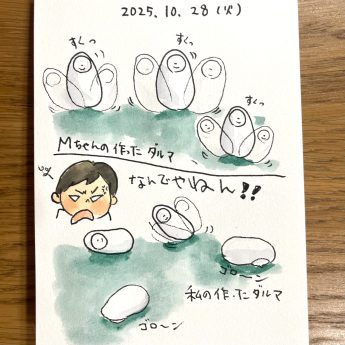 2025. 10. 28 (火)
すくっ
すくっ
すくっ
Mちゃんの作ったダルマ
なんでやねん!!
ゴローン
私の作ったダルマ
ゴローン